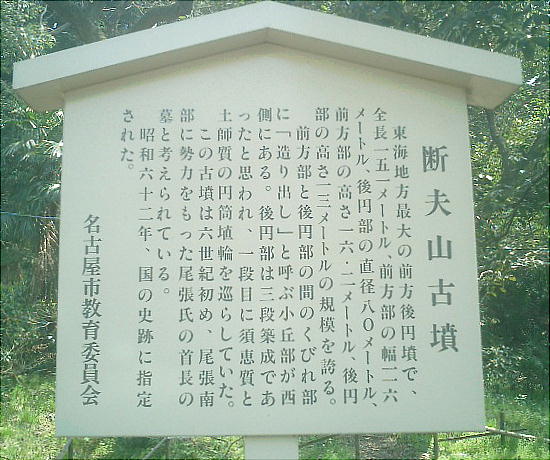 断夫山古墳
東海地方最大の前方後円墳で、
全長一五一メートル、前方部の幅一一六
メートル、後円部の直径八〇メートル、
前方部の高さ一六・二メートル、後円
部の高さ一三メートルの規模を誇る。
前方部と後円部の間のくびれ部
に「造り出し」と呼ぶ小丘部が西
側にある。後円部は三段築成であ
ったと思われ、一段目に須恵質と
土師質の円筒埴輪を巡らしていた。
この古墳は六世紀初め、尾張南
部に勢力をもった尾張氏の首長の
墓と考えられている。
昭和六十二年、国の史跡に指定
された。
名古屋市教育委員会